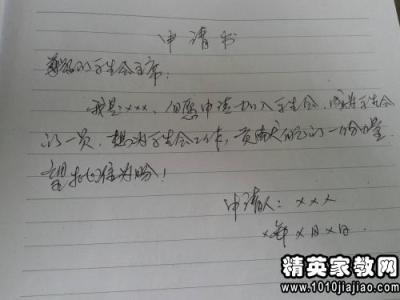 申请书
尊敬的学生会主席：
我是×××，但愿申请加入学生会，成为学生会
的一员，想为学生会工作，贡献自己的一份力量。
望批准为盼！
申请人：×××
×年×月×日
精英家教网
www.1010jiajiao.com